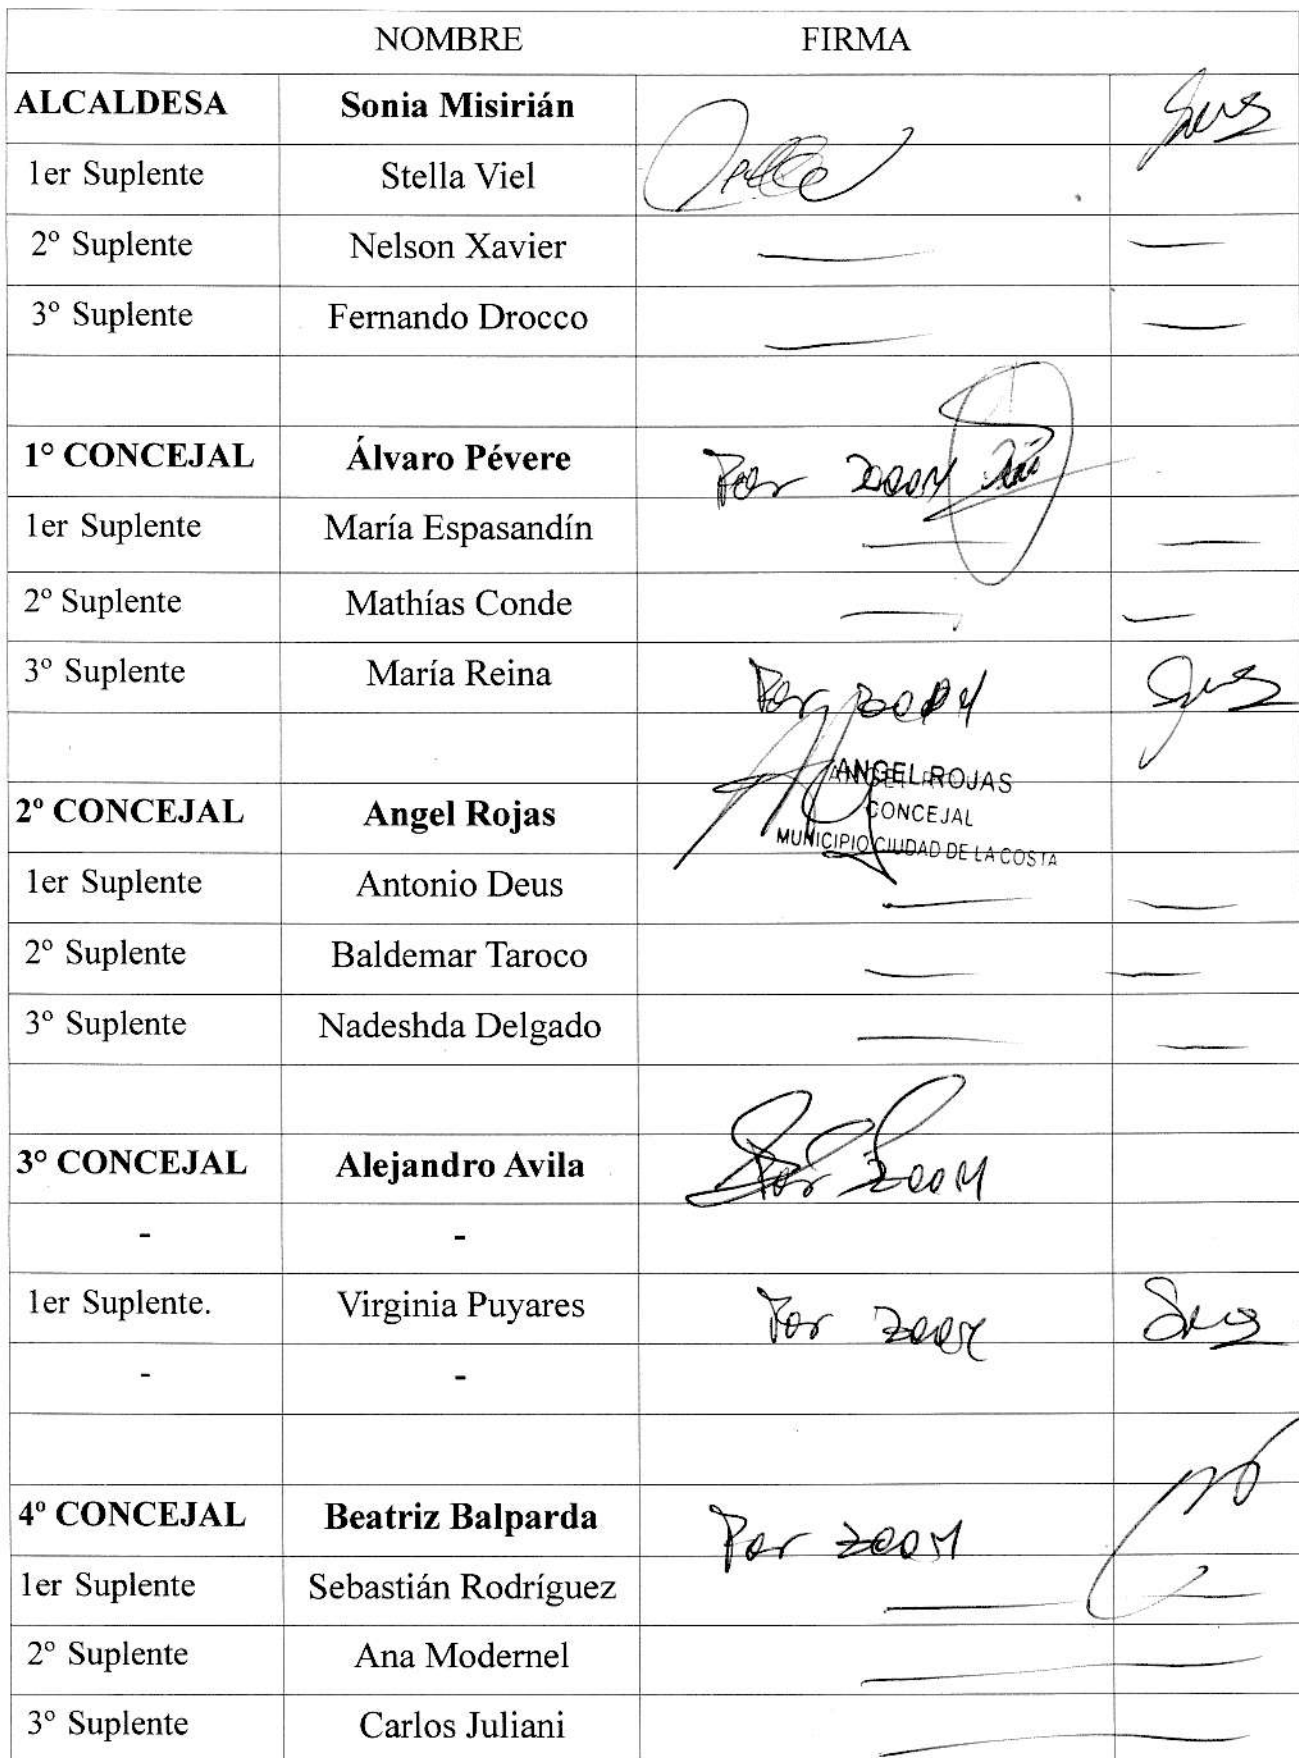 NOMBRE FIRMA
ALCALDESA Sonia Misirián
1er Suplente Stella Viel
2º Suplente Nelson Xavier
3º Suplente Fernando Drocco
1º CONCEJAL Álvaro Pévere Por zoom
1er Suplente María Espasandín
2º Suplente Mathías Conde
3º Suplente María Reina Por zoom
ANGEL ROJAS
2º CONCEJAL Angel Rojas CONCEJAL
MUNICIPIO CIUDAD DE LA COSTA
1er Suplente Antonio Deus
2º Suplente Baldemar Taroco
3º Suplente Nadeshda Delgado
3º CONCEJAL Alejandro Avila Por zoom
- -
1er Suplente. Virginia Puyares Por zoom
- -
4º CONCEJAL Beatriz Balparda Por zoom
1er Suplente Sebastián Rodríguez
2º Suplente Ana Modernel
3º Suplente Carlos Juliani